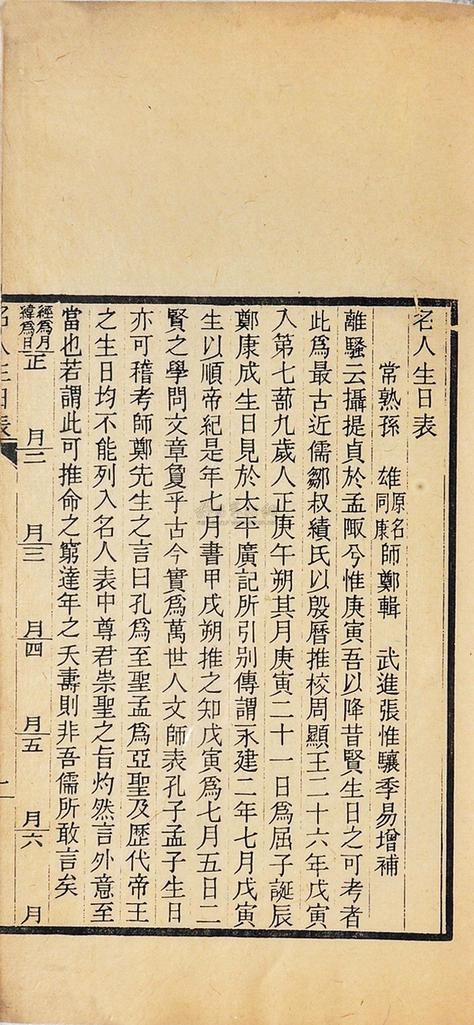 名人生日表
常熟孫　雄原名同康師鄭輯　武進張惟驤季易增補
離騷云攝提貞於孟陬兮惟庚寅吾以降昔賢生日之可考者
此爲最古近儒鄒叔績氏以殷曆推校周顯王二十六年戊寅
入第七蔀九歲人正庚午朔其月庚寅二十一日爲屈子誕辰
鄭康成生日見於太平廣記所引別傳謂永建二年七月戊寅
生以順帝紀是年七月書甲戌朔推之知戊寅爲七月五日二
賢之學問文章負乎古今實爲萬世人文師表孔子孟子生日
亦可稽考師鄭先生之言曰孔爲至聖孟爲亞聖及歷代帝王
之生日均不能列入名人表中尊君崇聖之旨灼然言外意至
當也若謂此可推命之窮達年之夭壽則非吾儒所敢言矣
經爲月緯爲日正月二月三月四月五月六月
名人生日表　一